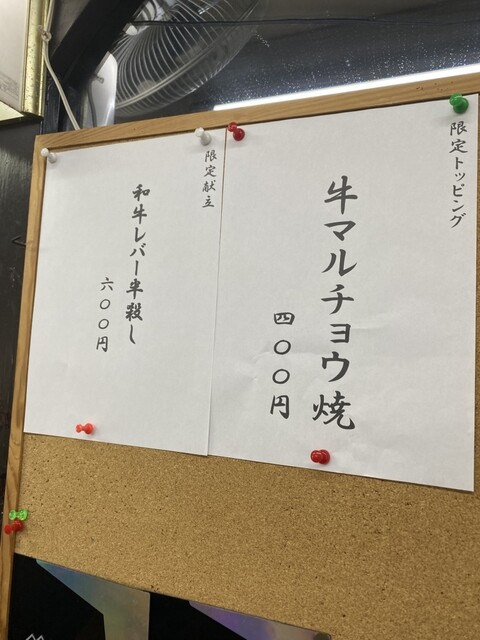 限定トッピング
牛マルチョウ焼
四〇〇円
限定献立
和牛レバー半殺し
六〇〇円